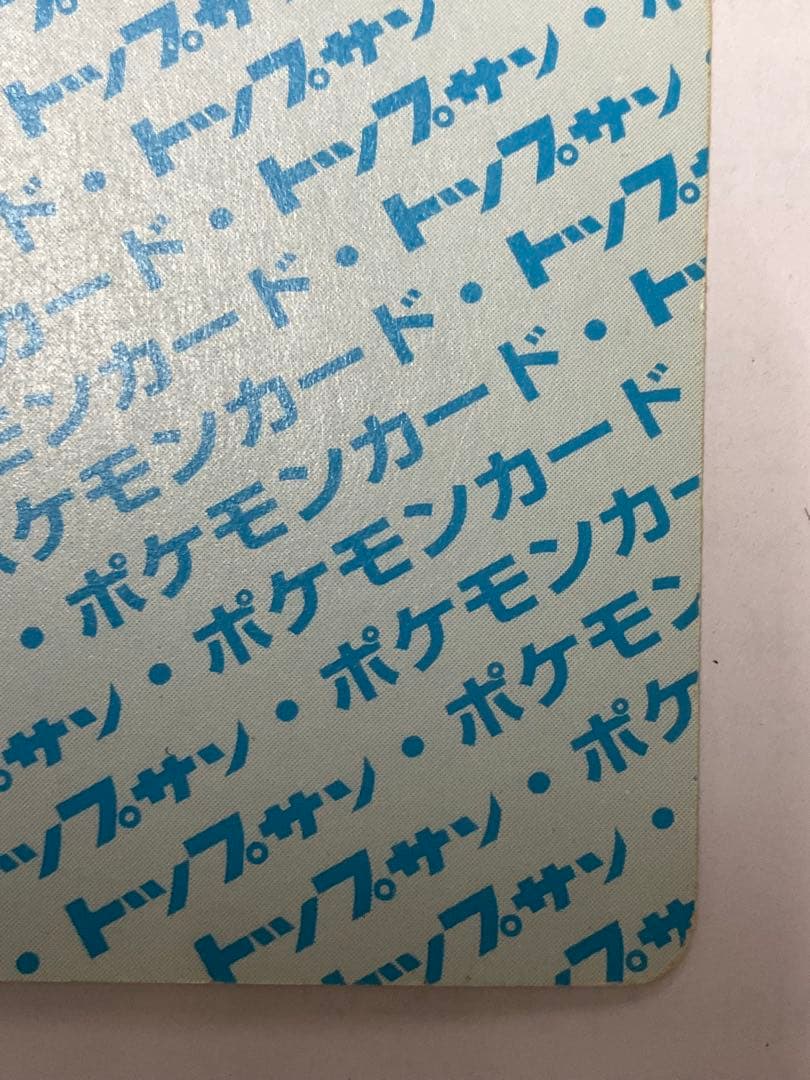 トップサ
ド・トップサン
カード・トップサン・
モンカード・トップサン
ケモンカード・トップ
・ポケモンカード・トッ
サン・ポケモンカード
ップサン・ポケモンカー
・トップサン・ポケモン
トップサン・ポケ
トップサン・
ップサ